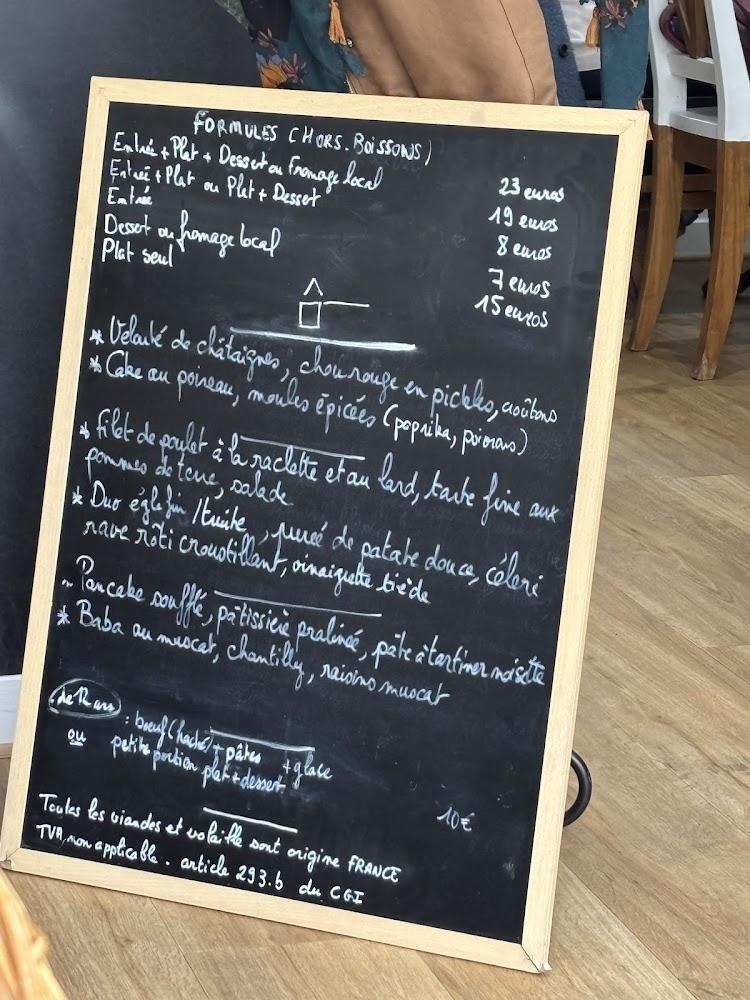 FORMULES (HORS. BOISSONS)
Entrée + Plat + Dessert ou fromage local 23 euros
Entrée + Plat ou Plat + Dessert 19 euros
Entrée 8 euros
Dessert ou fromage local 7 euros
Plat seul 15 euros
* Velouté de châtaignes, chou rouge en pickles, croûtons
* Cake au poireau, moules épicées (paprika, poivrons)
* filet de poulet à la raclette et au lard, tarte fine aux
pommes de terre, salade
* Duo églefin / truite, purée de patate douce, céleri
rave rôti croustillant, vinaigrette tiède
Pancake soufflé, pâtissière pralinée, pâte à tartiner noisette
* Baba au muscat, chantilly, raisins muscat
- de 12 ans : boeuf (haché) + pâtes + glace
ou petite portion plat + dessert 10€
Toutes les viandes et volaille sont origine FRANCE
TVA non applicable. article 293.b du CGI